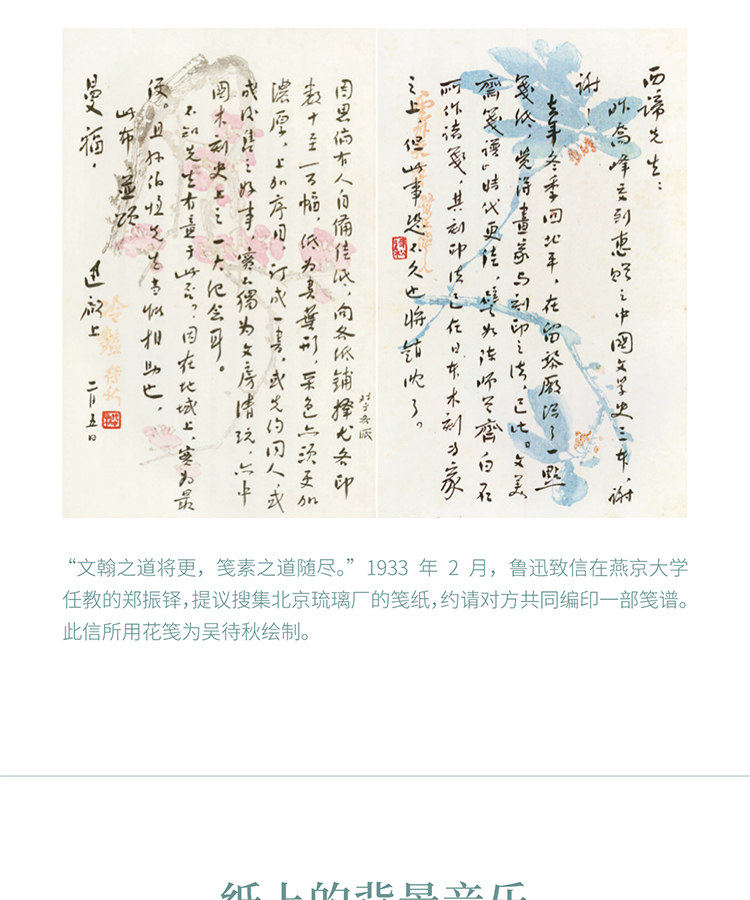 西諦先生：
昨喬峰交到惠贈之中國文學史三本，謝
謝！
去年冬季回北平，在留黎厰得了一點
箋紙，覺得畫家与刻印之法，已比《文美
齋箋譜》時代更佳，譬如陳師曾齊白石
所作諸箋，其刻印法已在日本木刻專家
之上，但此事恐不久也將銷沈了。
因思倘有人自備佳紙，向各紙鋪擇尤各印
對于各派
數十至一百幅，紙為書葉形，采色亦須更加
濃厚，上加序目，訂成一書，或先約同人，或
成後售之好事，實不獨為文房清玩，亦中
國木刻史上之一大紀念耳。
不知先生有意于此否？因在地域上，實為最
便。且孫伯恆先生當能相助也，
此布，並頌
曼福，
迅 啟上 二月五日
“文翰之道将更，笺素之道随尽。”1933 年 2 月，鲁迅致信在燕京大学
任教的郑振铎，提议搜集北京琉璃厂的笺纸，约请对方共同编印一部笺谱。
此信所用花笺为吴待秋绘制。
纸上的背景音乐